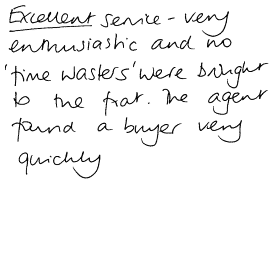 Excellent service - very
enthusiastic and no
'time wasters' were brought
to the flat. The agent
found a buyer very
quickly